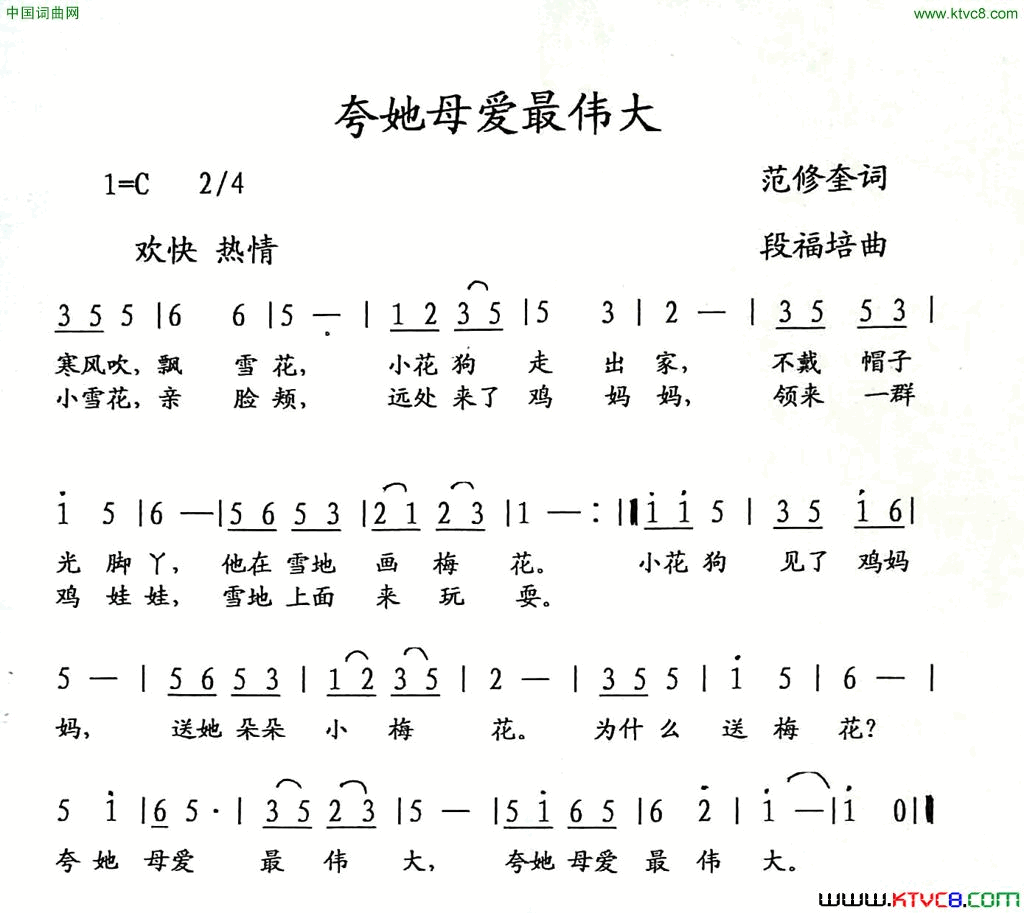 中国词曲网
www.ktvc8.com
夸她母爱最伟大
1=C 2/4 范修奎词
欢快 热情 段福培曲
3 5 5 | 6 6 | 5 — | 1 2 3 5 | 5 3 | 2 — | 3 5 5 3 |
寒风吹，飘 雪 花， 小花 狗 走 出 家， 不戴 帽子
小雪花，亲 脸 颊， 远处 来了 鸡 妈 妈， 领来 一群
i 5 | 6 — | 5 6 5 3 | 2 1 2 3 | 1 — :|| i i 5 | 3 5 i 6 |
光 脚 丫， 他在 雪地 画 梅 花。 小花 狗 见了 鸡妈
鸡 娃 娃， 雪地 上面 来 玩 耍。
5 — | 5 6 5 3 | 1 2 3 5 | 2 — | 3 5 5 | i 5 | 6 — |
妈， 送她 朵朵 小 梅 花。 为什 么 送 梅 花？
5 i | 6 5 · | 3 5 2 3 | 5 — | 5 i 6 5 | 6 2 | i — | i 0 ||
夸 她 母爱 最 伟 大， 夸她 母爱 最 伟 大。
www.KTVC8.COM